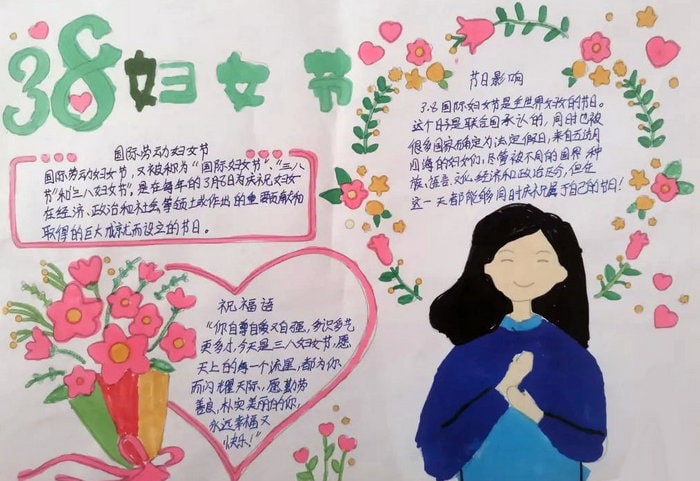 38妇女节
国际劳动妇女节
国际劳动妇女节，又被称为“国际妇女节”、“三八
节”和“三八妇女节”，是在每年的3月8日为庆祝妇女
在经济、政治和社会等领域作出的重要贡献和
取得的巨大成就而设立的节日。
祝福语
“你自尊自爱又自强，多识多艺
更多才，今天是三八妇女节，愿
天上的每一个流星，都为你
而闪耀天际，愿勤劳
善良，朴实美丽的你，
永远幸福又
快乐！”
节日影响
3.8国际妇女节是全世界妇女的节日。
这个日子是联合国承认的，同时也被
很多国家确定为法定假日，来自五湖
四海的妇女们，尽管被不同的国界、种
族、语言、文化、经济和政治区分，但在
这一天都能够同时庆祝属于自己的节日！